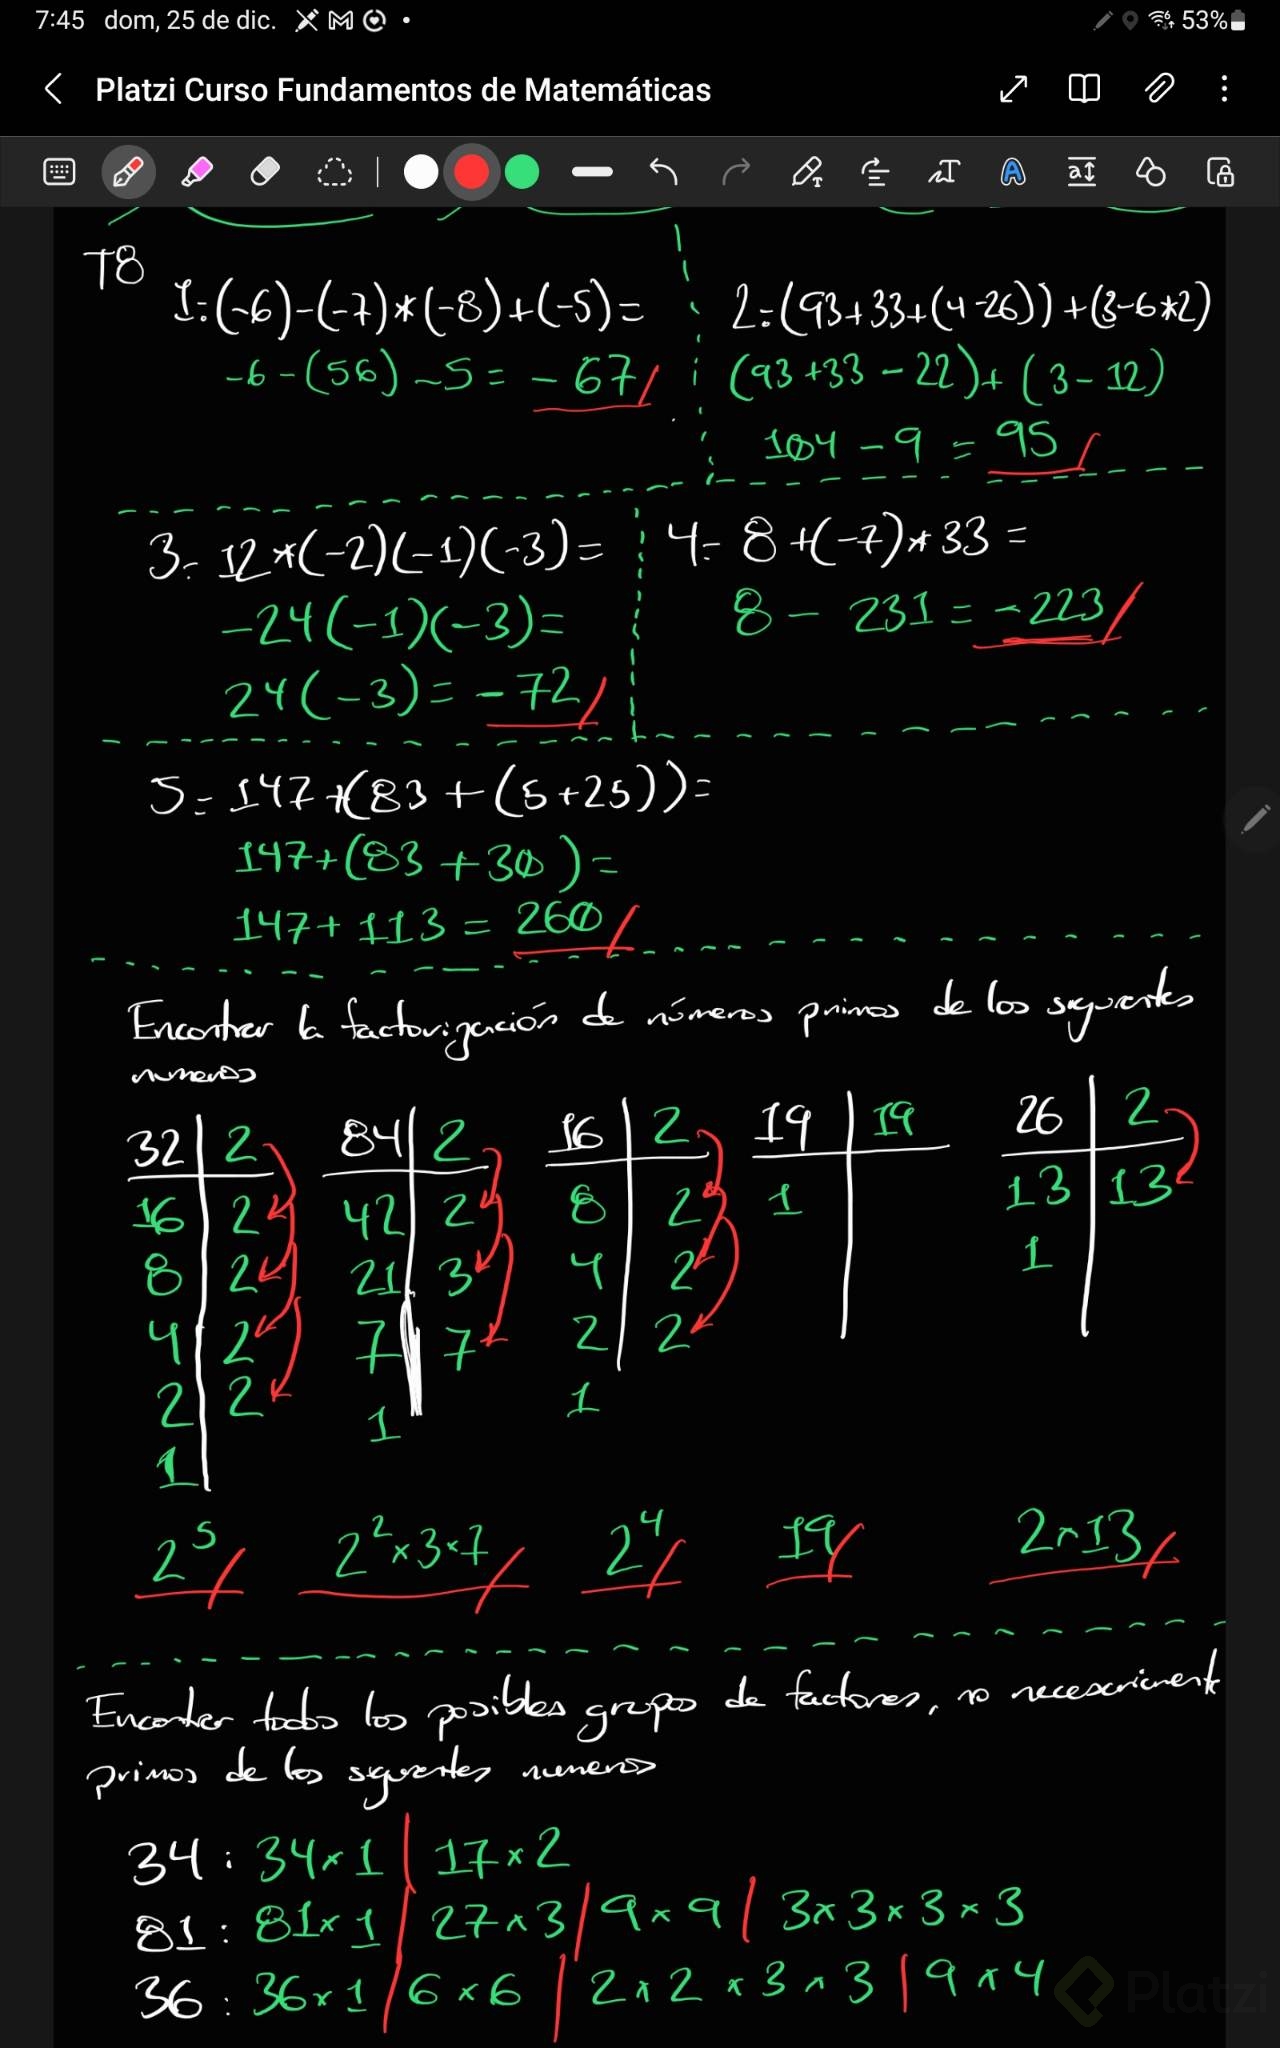 7:45 dom, 25 de dic. 53%
Platzi Curso Fundamentos de Matemáticas
T8
1.-(-6)-(-7)*(-8)+(-5)=
-6-(56)-5=-67
2.-(93+33+(4-26))+(3-6*2)
(93+33-22)+(3-12)
104-9=95
3.- 12*(-2)(-1)(-3)=
-24(-1)(-3)=
24(-3)=-72
4.- 8+(-7)*33=
8-231=-223
5.- 147+(83+(5+25))=
147+(83+30)=
147+113=260
Encontrar la factorización de números primos de los siguientes
numeros
32 | 2
16 | 2
8 | 2
4 | 2
2 | 2
1
2⁵
84 | 2
42 | 2
21 | 3
7 | 7
1
2²×3×7
16 | 2
8 | 2
4 | 2
2 | 2
1
2⁴
19 | 19
1
19
26 | 2
13 | 13
1
2×13
Encontrar todos los posibles grupos de factores, no necesariamente
primos de los siguientes numeros
34: 34×1 | 17×2
81: 81×1 | 27×3 | 9×9 | 3×3×3×3
36: 36×1 | 6×6 | 2×2×3×3 | 9×4
Platzi